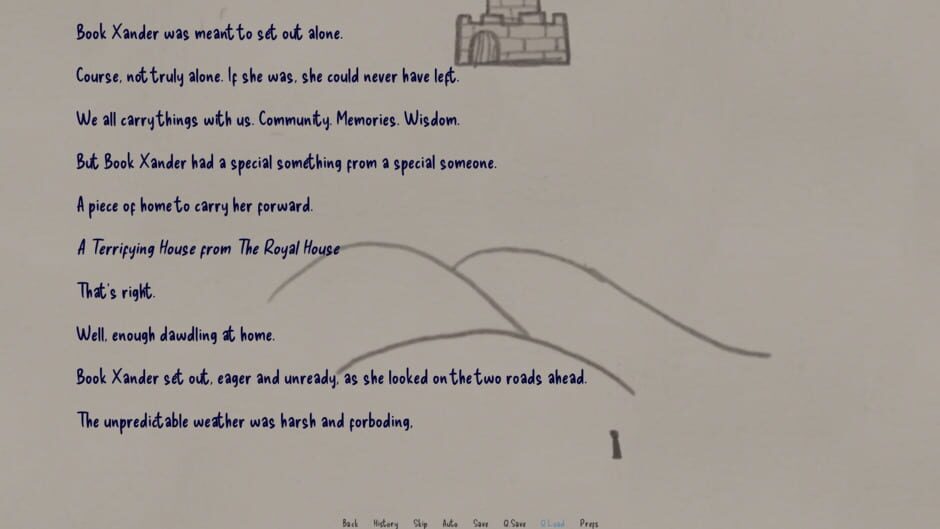 Book Xander was meant to set out alone.
Course, not truly alone. If she was, she could never have left.
We all carry things with us. Community. Memories. Wisdom.
But Book Xander had a special something from a special someone.
A piece of home to carry her forward.
A Terrifying House from The Royal House
That's right.
Well, enough dawdling at home.
Book Xander set out, eager and unready, as she looked on the two roads ahead.
The unpredictable weather was harsh and forboding,
Back History Skip Auto Save Q.Save Q.Load Prefs